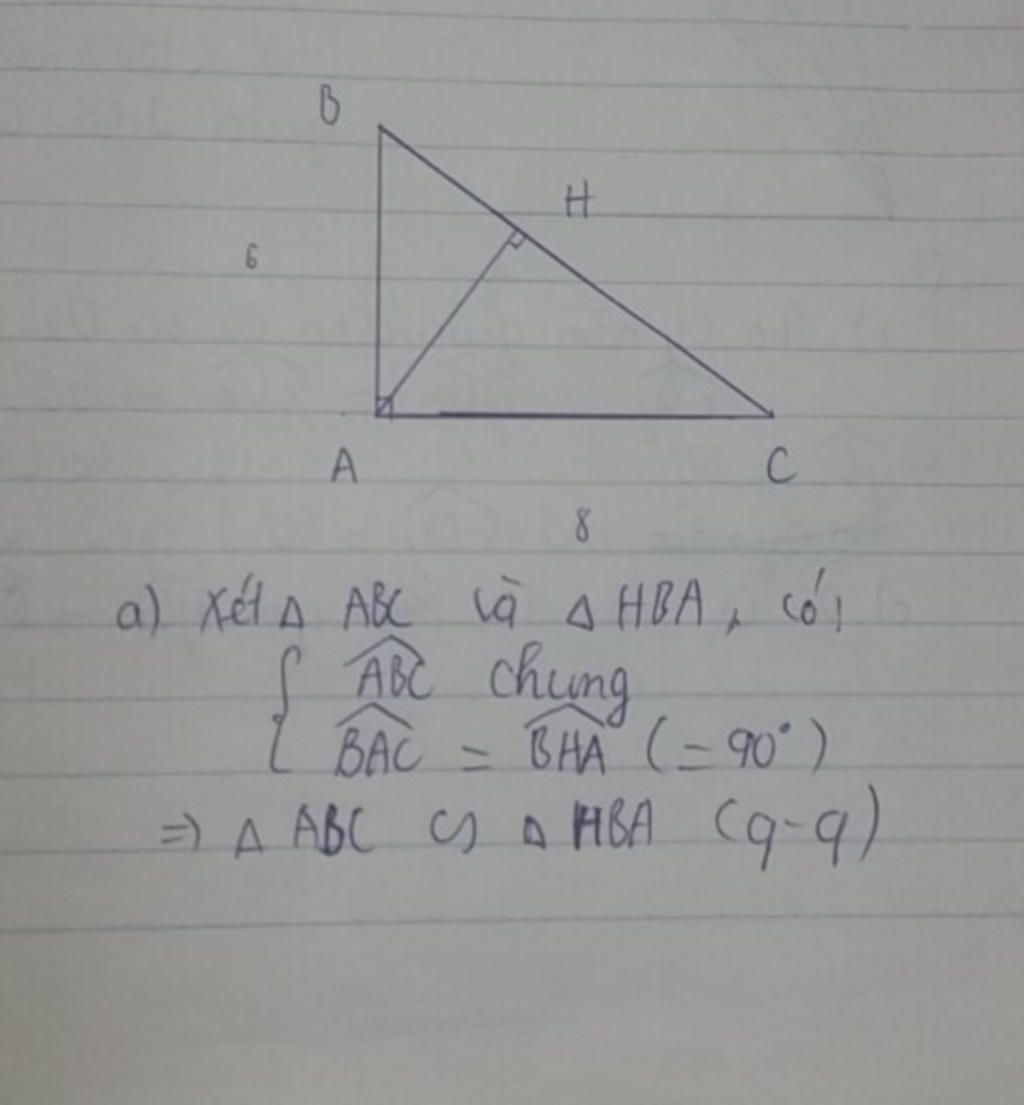 B
H
6
A
C
8
a) Xét Δ ABC và Δ HBA, có:
{ \widehat{ABC} chung
\widehat{BAC} = \widehat{BHA} (= 90°)
=> Δ ABC ∽ Δ HBA (g-g)